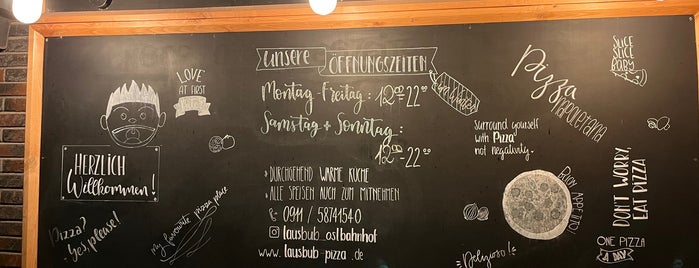 unsere
ÖFFNUNGSZEITEN
Montag-Freitag: 12⁰⁰-22⁰⁰
Samstag + Sonntag:
12⁰⁰-22⁰⁰
› DURCHGEHEND WARME KÜCHE
› ALLE SPEISEN AUCH ZUM MITNEHMEN
0911 / 58741540
lausbub_ostbahnhof
www.lausbub-pizza.de
HERZLICH
Willkommen!
Pizza?
- Yes, please!
LOVE
AT FIRST
My favourite pizza place
Pizza
NAPOLETANA
SLICE
SLICE
BABY
Surround yourself
with Pizza
not negativity.
BUON
APPETITO
DON'T WORRY,
EAT PIZZA
ONE PIZZA
A DAY
Delizioso!